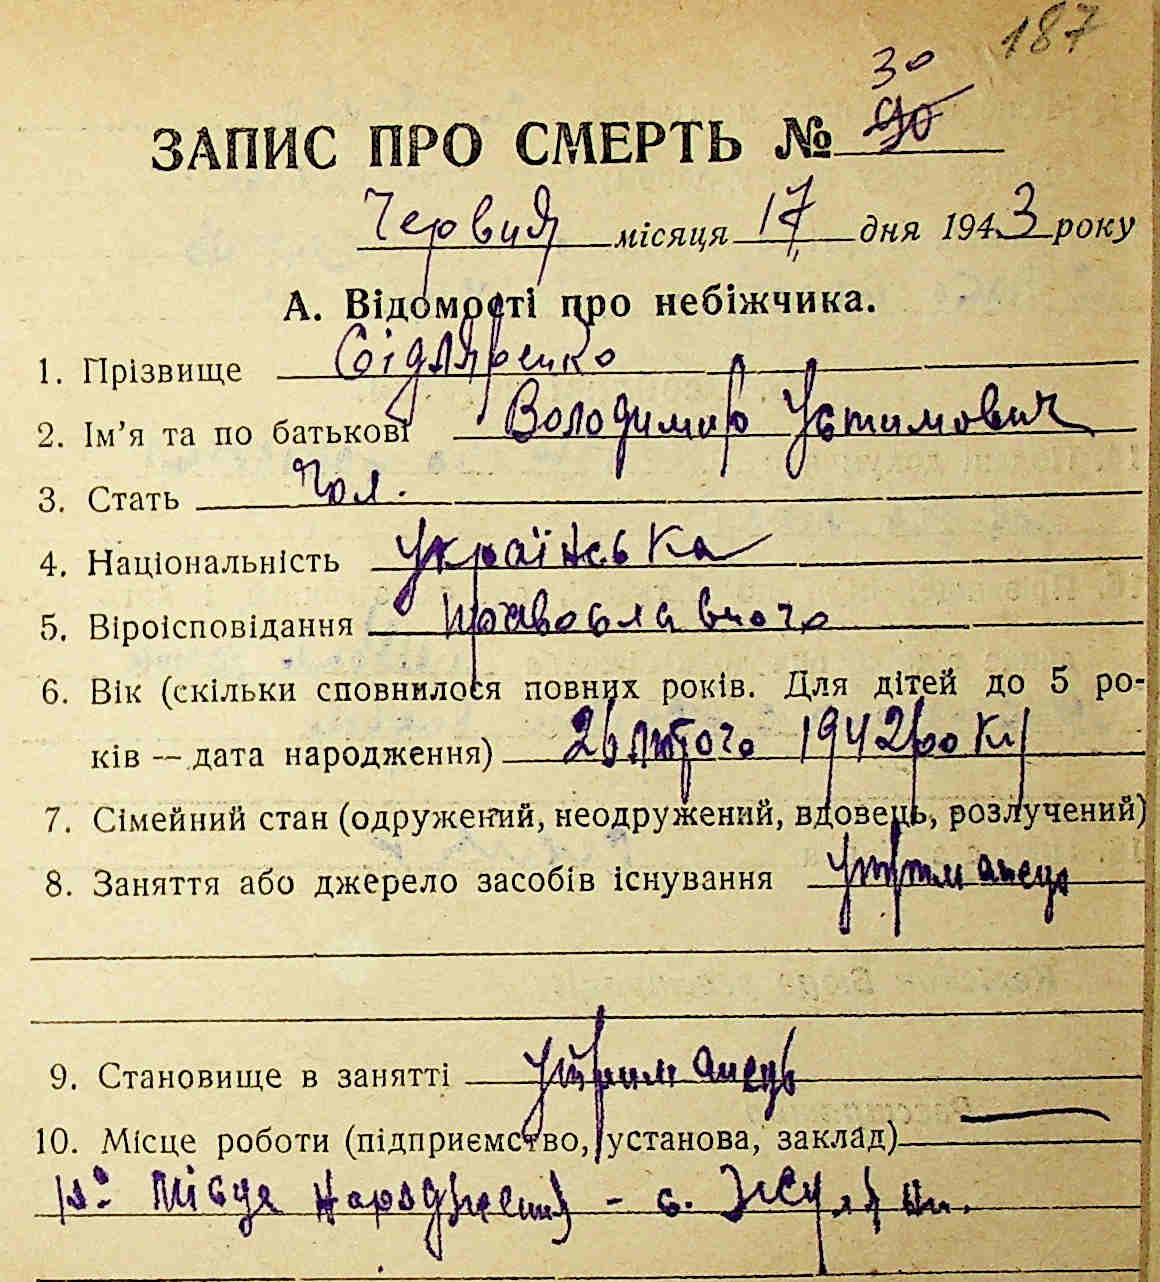 187
30
ЗАПИС ПРО СМЕРТЬ № 90
Червня місяця 17 дня 1943 року
А. Відомості про небіжчика.
1. Прізвище Сідляренко
2. Ім'я та по батькові Володимир Устимович
3. Стать Чол.
4. Національність Українська
5. Віроісповідання православного
6. Вік (скільки сповнилося повних років. Для дітей до 5 ро-
ків — дата народження) 26 лютого 1942 року
7. Сімейний стан (одружений, неодружений, вдовець, розлучений)
8. Заняття або джерело засобів існування утриманець
9. Становище в занятті утриманець
10. Місце роботи (підприємство, установа, заклад) —
Місце народження - с. Жуляни.